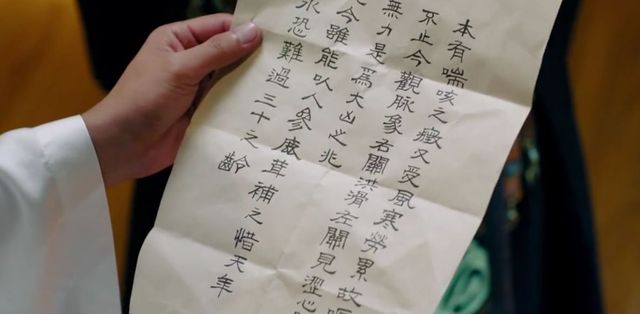 本有喘咳之癥又受風寒勞累故
不止今觀脉象右關洪滑左關見澀心
無力是為大凶之兆
今雖能以人參鹿茸補之惜天年
永恐難過三十之齡